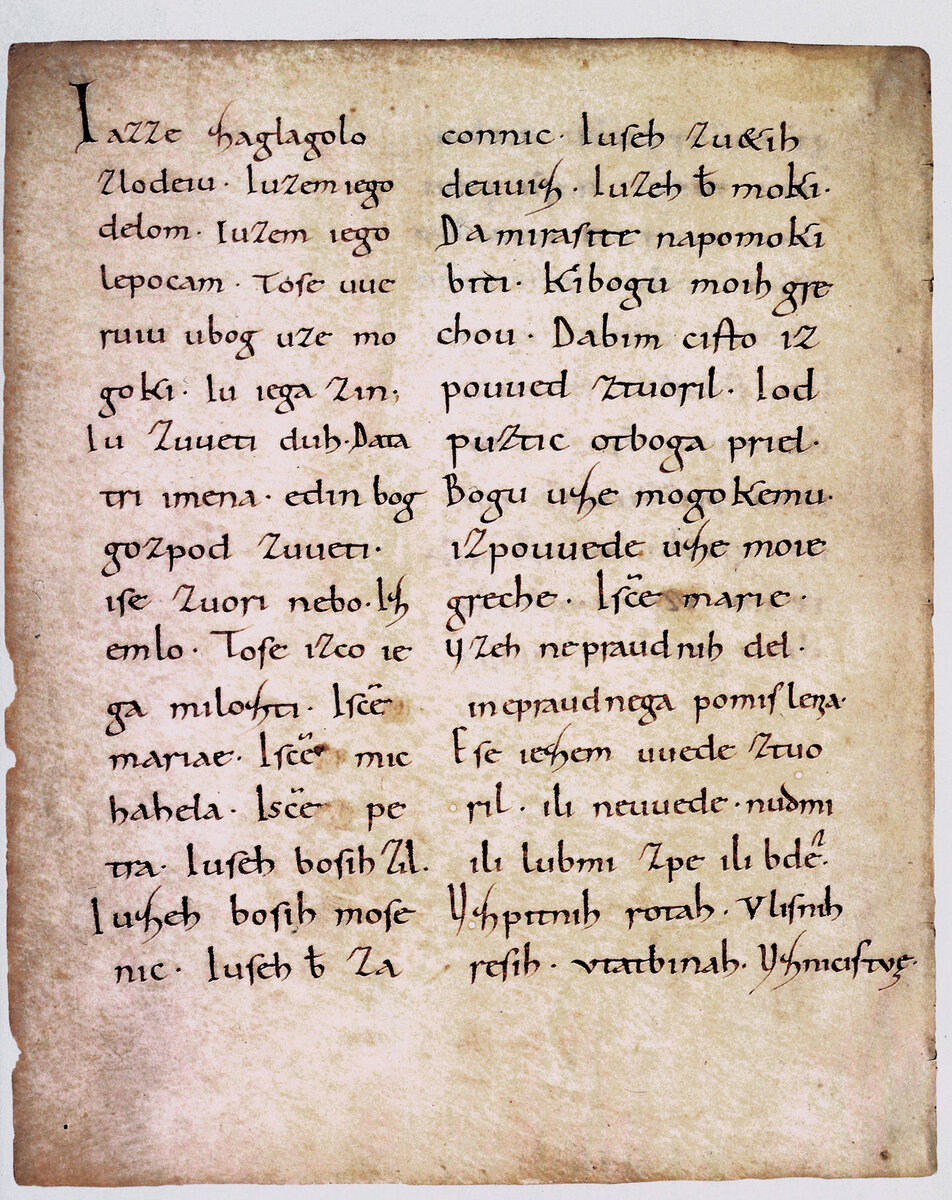 Iazze zaglagolo
zlodeiu· Iuzem iego
delom· Iuzem iego
lepocam· Tose uue
ruiu ubog uze mo
goki· Iu iega zin,
Iu zuueti duh· Data
tri imena· edin bog
gozpod zuueti·
ise zuori nebo· Iz
emlo· Tose izco ie
ga milozti· Isc̄e
mariae· Isc̄e mic
hahela· Isc̄e pe
tra· Iuseh bosih zil.
Iuzeh bosih mose
nic· Iuseh b̄ za
connic· Iuseh zu&ih
deuuiz· Iuzeh b̄ moki·
Da mirasite napomoki
biti· Kibogu moih gre
chou· Dabim cisto iz
pouued ztuoril· Iod
puztic otboga priel·
Bogu uze mogokemu·
izpouuede uze moie
greche· Isc̄e marie·
Vzeh nepraudnih del·
inepraudnega pomislena·
Ese iezem uuede ztuo
ril· ili neuuede· nudmi
ili lubmi zpe ili bdé·
Vzpitnih rotah· Vlisnih
resih· vtatbinah· Vznicistvę·